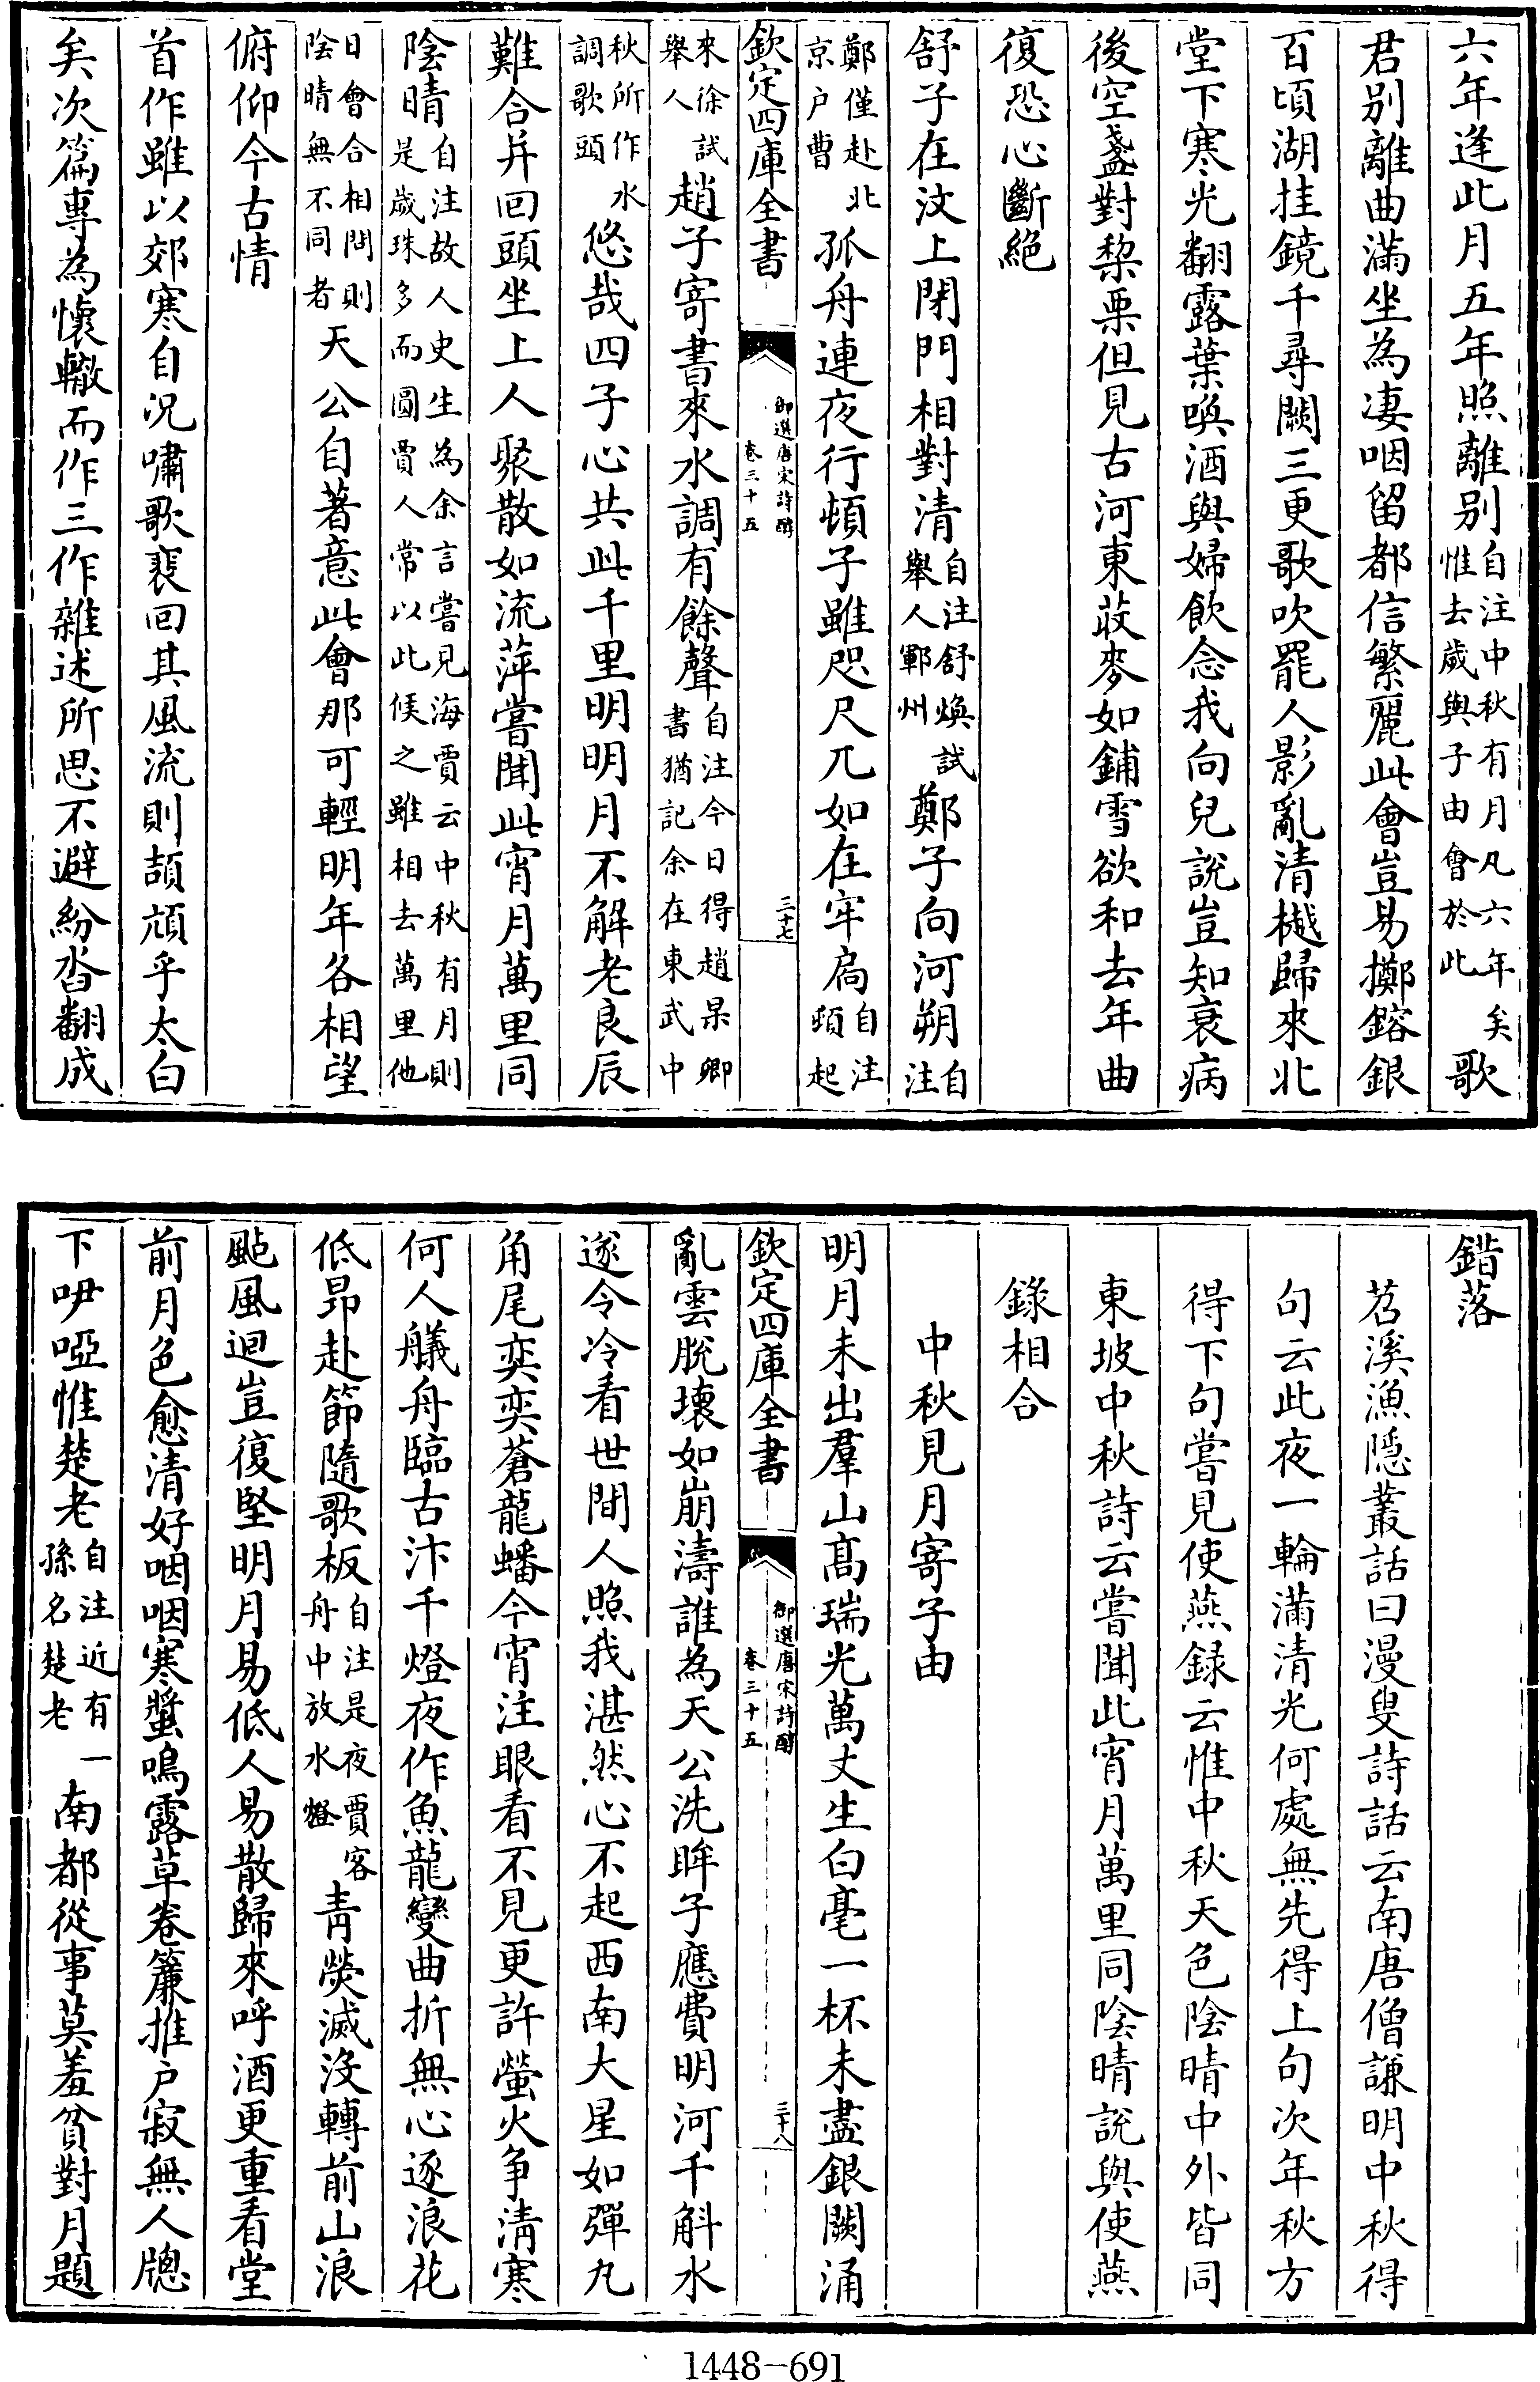 六年逢此月五年照離别自注中秋有月凡六年矣惟去歲與子由會於此歌
君别離曲滿坐為凄咽留都信繁麗此會豈易擲鎔銀
百頃湖挂鏡千尋闕三更歌吹罷人影亂清樾歸來北
堂下寒光翻露葉喚酒與婦飲念我向兒說豈知衰病
後空盞對棃栗但見古河東蓛麥如鋪雪欲和去年曲
復恐心斷絕
舒子在汶上閉門相對清自注舒煥試舉人鄆州鄭子向河朔自注
鄭僅赴北京户曹孤舟連夜行頓子雖咫尺兀如在牢扃自注頓起
來徐試舉人趙子寄書來水調有餘聲自注今日得趙杲卿書猶記余在東武中
秋所作水調歌頭悠哉四子心共此千里明明月不解老良辰
難合并回頭坐上人聚散如流萍嘗聞此宵月萬里同
陰晴自注故人史生為余言嘗見海賈云中秋有月則是歲珠多而圓賈人常以此候之雖相去萬里他
日會合相問則陰晴無不同者天公自著意此會那可輕明年各相望
俯仰今古情
首作雖以郊寒自况嘯歌裴回其風流則頡頏乎太白
矣次篇專為懷轍而作三作雜述所思不避紛沓翻成
欽定四庫全書
御選唐宋詩醇
卷三十五
三十七
錯落
苕溪漁隱叢話曰漫叟詩話云南唐僧謙明中秋得
句云此夜一輪滿清光何處無先得上句次年秋方
得下句嘗見使燕録云惟中秋天色陰晴中外皆同
東坡中秋詩云嘗聞此宵月萬里同陰晴説與使燕
錄相合
中秋見月寄子由
明月未出羣山髙瑞光萬丈生白毫一杯未盡銀闕涌
亂雲脫壞如崩濤誰為天公洗眸子應費明河千斛水
遂令冷看世間人照我湛然心不起西南大星如彈丸
角尾奕奕蒼龍蟠今宵注眼看不見更許螢火争清寒
何人艤舟臨古汴千燈夜作魚龍變曲折無心逐浪花
低昂赴節隨歌板自注是夜賈客舟中放水燈青熒滅没轉前山浪
颭風迴豈復堅明月易低人易散歸來呼酒更重看堂
前月色愈清好咽咽寒螿鳴露草卷簾推户寂無人牕
下咿啞惟楚老自注近有一孫名楚老南都從事莫羞貧對月題
欽定四庫全書
御選唐宋詩醇
卷三十五
三十八
1448-691